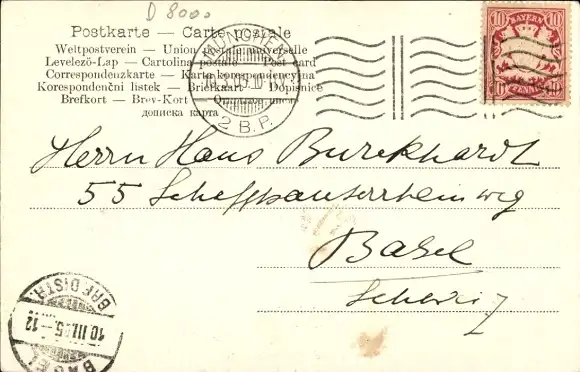 D 8000
Postkarte — Carte postale
Weltpostverein — Union postale universelle
Levelező-Lap — Cartolina postale — Post card
Correspondenzkarte — Karta korespondencyjna
Korespondenční listek — Briefkaart — Dopisnice
Brefkort — Brev-Kort —
дописна карта
MÜNCHEN
2 B.P.
BAYERN
10 10
PFENNIG
Herrn Hans Burckhardt
55
Basel
Schweiz
BASEL
10 III. 05.-12
BRF. DISTR.